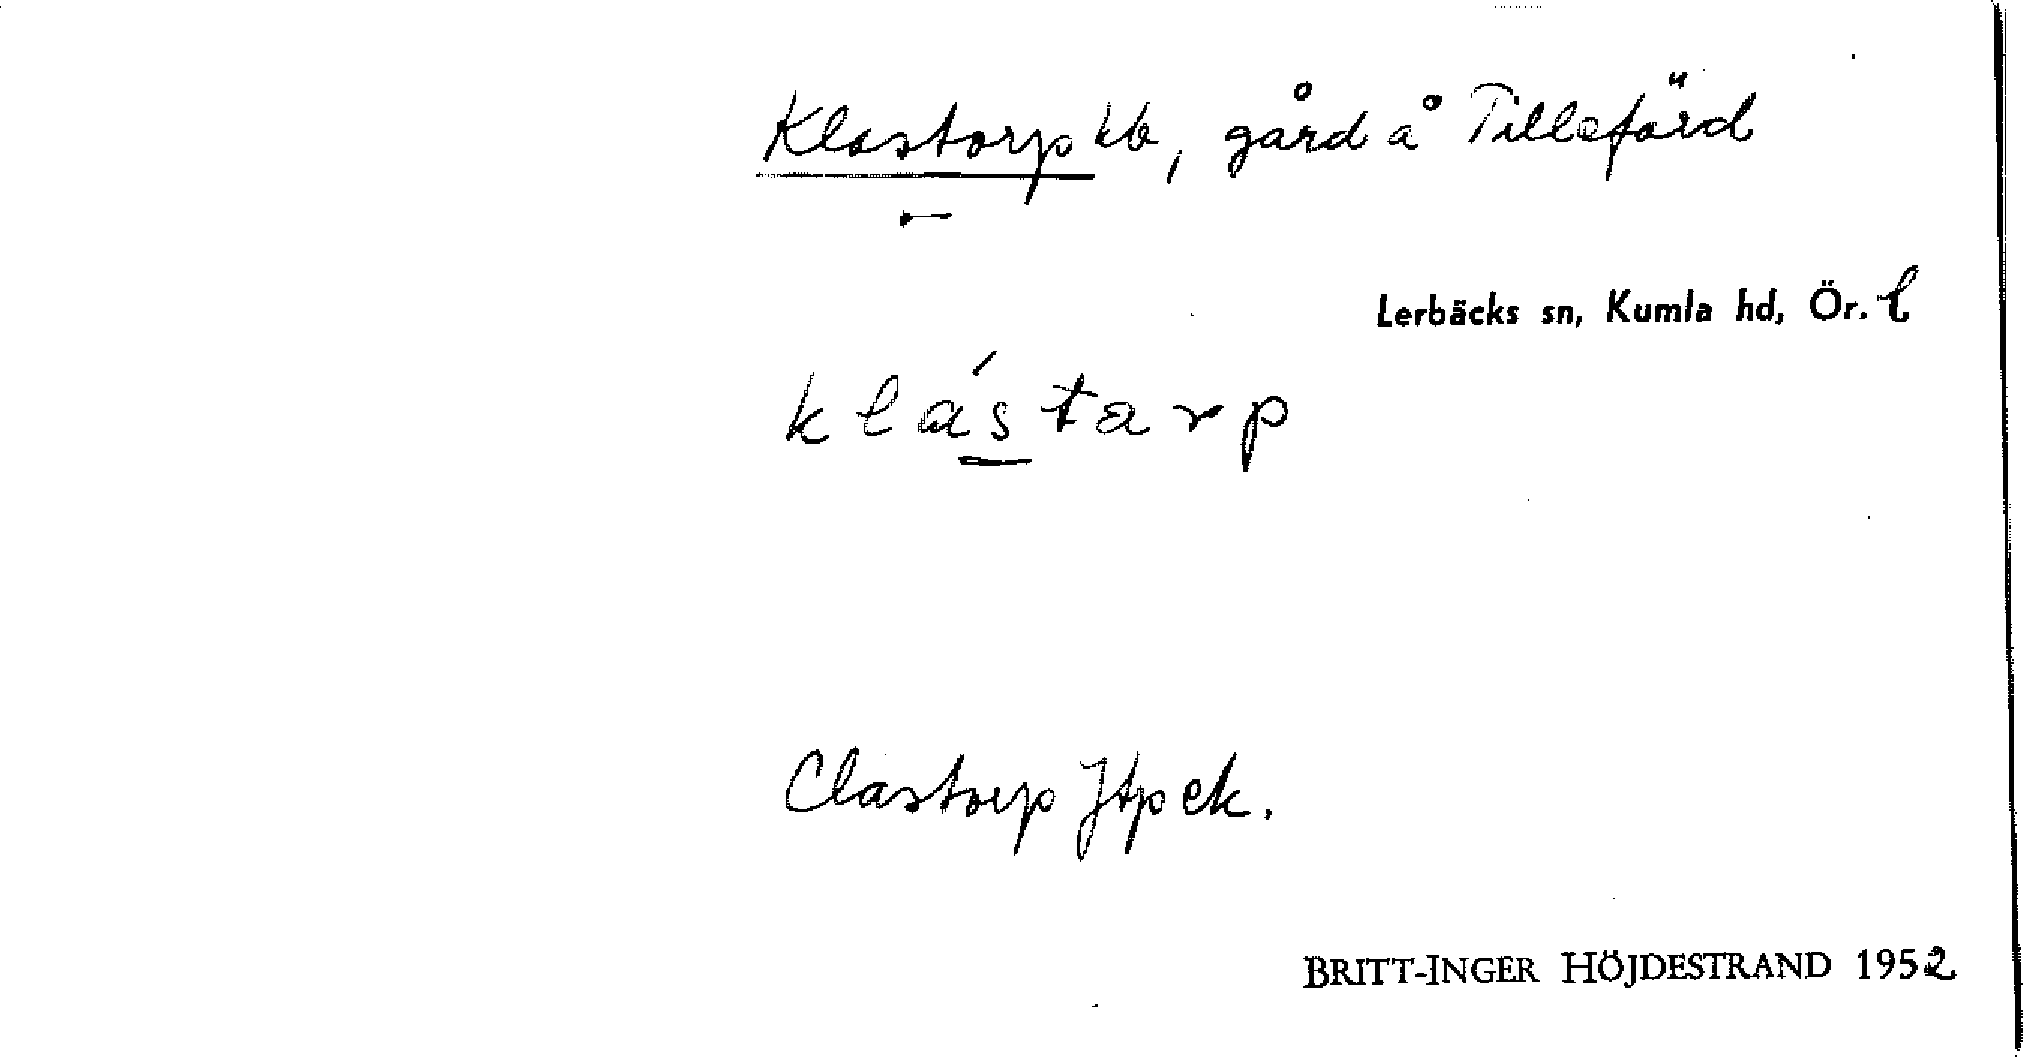 Klastorp kb, gård å Tilleförd
Lerbäcks sn, Kumla hd, Ör. l
klástarp
Clastorp Jtpek.
BRITT-INGER HÖJDESTRAND 1952